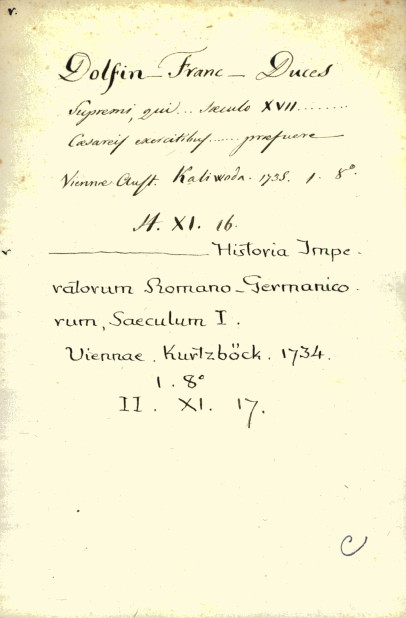 v.
Dolfin - Franc - Duces
Supremi, qui ... sæculo XVII ........
Cæsareis exercitibus ...... præfuere
Viennæ Aust. Kaliwoda. 1735. 1. 8°.
H. XI. 16.
v ———— Historia Impe-
ratorum Romano-Germanico-
rum, Saeculum I.
Viennae. Kurtzböck. 1734.
1. 8°
II. XI. 17.
C